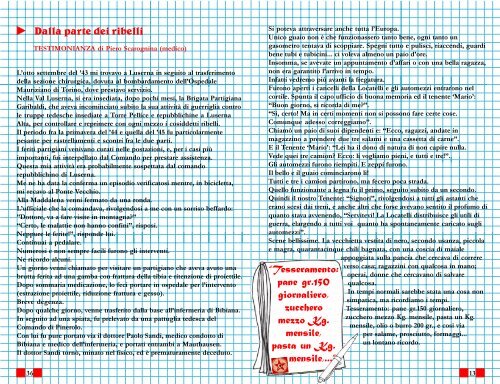 Dalla parte dei ribelli
TESTIMONIANZA di Piero Scarognina (medico)
L'otto settembre del '43 mi trovavo a Luserna in seguito al trasferimento
della sezione chirurgica, dovuta al bombardamento dell'Ospedale
Mauriziano di Torino, dove prestavo servizio.
Nella Val Luserna, si era insediata, dopo pochi mesi, la Brigata Partigiana
Garibaldi, che aveva incominciato subito la sua attività di guerriglia contro
le truppe tedesche insediate a Torre Pellice e repubblichine a Luserna
Alta, per controllare e reprimere con ogni mezzo i cosiddetti ribelli.
Il periodo fra la primavera del '44 e quella del '45 fu particolarmente
pesante per rastrellamenti e scontri fra le due parti.
I feriti partigiani venivano curati nelle postazioni, e, per i casi più
importanti, fui interpellato dal Comando per prestare assistenza.
Questa mia attività era probabilmente sospettata dal comando
repubblichino di Luserna.
Me ne ha data la conferma un episodio verificatosi mentre, in bicicletta,
mi recavo al Ponte Vecchio.
Alla Maddalena venni fermato da una ronda.
L'ufficiale che la comandava, rivolgendosi a me con un sorriso beffardo:
"Dottore, va a fare visite in montagna?"
"Certo, le malattie non hanno confini", risposi.
Neppure le ferite!", rispònde lui.
Continuai a pedalare.
Numerosi e non sempre facili furono gli interventi.
Ne ricordo alcuni.
Un giorno venni chiamato per visitare un partigiano che aveva avuto una
brutta ferita ad una gamba con frattura della tibia e ritenzione di proiettile.
Dopo sommaria medicazione, lo feci portare in ospedale per l'intervento
(estrazione proiettile, riduzione frattura e gesso).
Breve degenza.
Dopo qualche giorno, venne trasferito dalla base all'infermeria di Bibiana.
In seguito ad una spiata, fu prelevato da una pattuglia tedesca del
Comando di Pinerolo.
Con lui fu pure portato via il dottore Paolo Sandi, medico condotto di
Bibiana e medico dell'infermeria, e portati entrambi a Mauthausen.
Il dottor Sandi tornò, minato nel fisico, ed è prematuramente deceduto.
36
Si poteva attraversare anche tutta l'Europa.
Unico guaio non è che funzionassero tanto bene, ogni tanto un
gasometro tentava di scoppiare. Spegni tutto e pulisci, riaccendi, guardi
bene tubi e tubicini... ci voleva almeno un paio d'ore.
Insomma, se avevate un appuntamento d'affari o con una bella ragazza,
non era garantito l'arrivo in tempo.
Infatti vedremo poi avanti la fregatura.
Furono aperti i cancelli della Locatelli e gli automezzi entrarono nel
cortile. Spunta il capo ufficio di buona memoria ed il tenente 'Mario':
"Buon giorno, si ricorda di me?".
"Sì, certo! Ma in certi momenti non si possono fare certe cose.
Comunque adesso correggiamo".
Chiamò un paio di suoi dipendenti e: "Ecco, ragazzi, andate in
magazzino a prendere due tre salami e una cassetta di carne".
E il Tenente 'Mario': "Lei ha il dono di natura di non capire nulla.
Vede quei tre camion? Ecco: li vogliamo pieni, e tutti e tre!".
Gli automezzi furono riempiti. E zeppi furono.
Il bello e il guaio cominciarono lì!
Tutti e tre i camion partirono, ma fecero poca strada.
Quello funzionante a legna fu il primo, seguito subito da un secondo.
Quindi il nostro Tenente: "Signori", rivolgendosi a tutti gli astanti che
erano scesi dai treni, e anche altri che forse avevano sentito il profumo di
quanto stava avvenendo, "Servitevi! La Locatelli distribuisce gli utili di
guerra, elargendo a tutti voi quanto ha spontaneamente caricato sugli
automezzi".
Scene bellissime. La vecchietta vestita di nero, secondo usanza, piccola
e magra, quarantacinque chili bagnata, con una coscia di maiale
appoggiata sulla pancia che cercava di correre
verso casa; ragazzini con qualcosa in mano;
operai, donne che cercavano di salvare
qualcosa.
In tempi normali sarebbe stata una cosa non
simpatica, ma ricordiamo i tempi.
Tesseramento: pane gr.150 giornaliero,
zucchero mezzo Kg. mensile, pasta un Kg.
mensile, olio o burro 200 gr., e così via
per salame, prosciutto, formaggi...
un lontano ricordo.
Tesseramento:
pane gr.150
giornaliero,
zucchero
mezzo Kg.
mensile,
pasta un Kg.
mensile,...
13